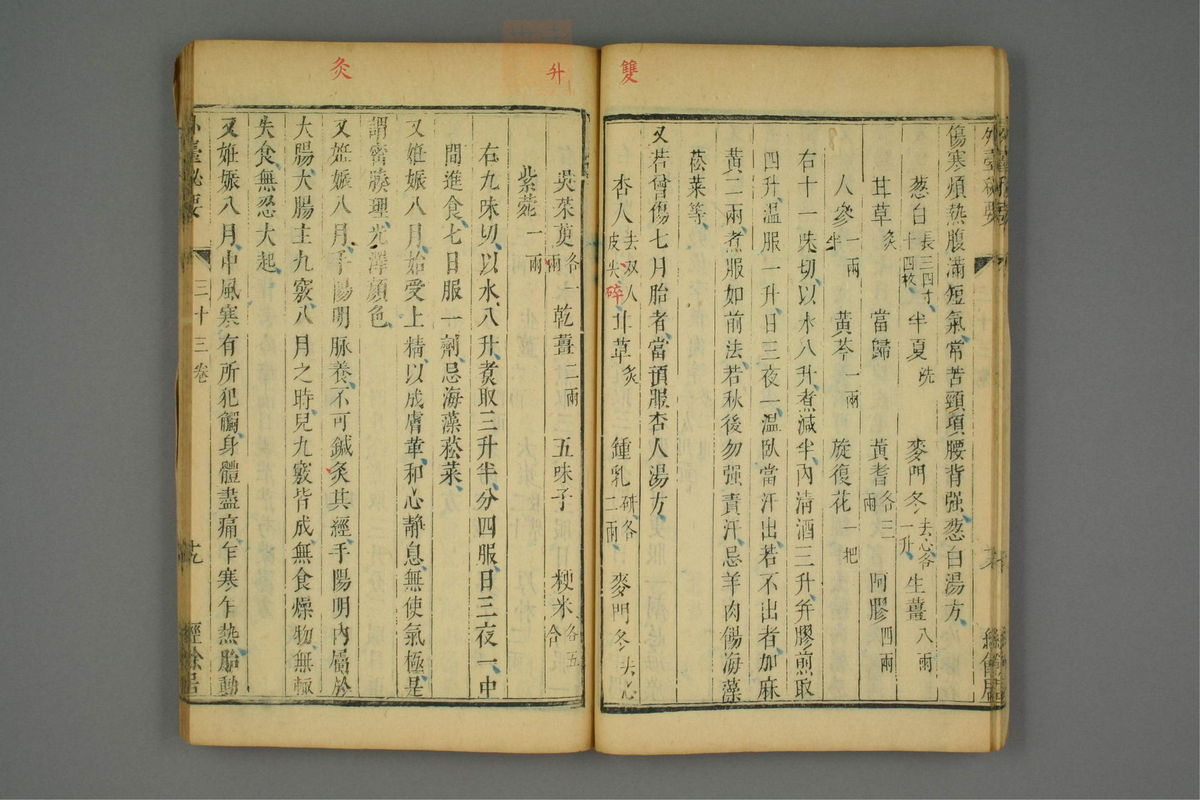 雙
傷寒煩熱腹滿短氣常苦頸項腰背强葱白湯方
葱白長三四寸十四枚 半夏洗 麥門冬去心各一升 生薑八兩
甘草炙 當歸 黃耆各三兩 阿膠四兩
人參一兩半 黃芩一兩 旋復花一把
右十一味切以水八升煮減半內清酒三升并膠煎取
四升溫服一升日三夜一溫臥當汗出若不出者加麻
黃二兩煮服如前法若秋後勿强責汗忌羊肉餳海藻
菘菜等
又若曾傷七月胎者當預服杏人湯方
杏人去双人皮尖碎 甘草炙 鍾乳研各二兩 麥門冬去心
升
吳茱萸各一兩 乾薑二兩 五味子 粳米各五合
紫菀一兩
右九味切以水八升煑取三升半分四服日三夜一中
間進食七日服一劑忌海藻菘菜
又姙娠八月始受上精以成膚革和心靜息無使氣極是
謂密腠理光澤顏色
灸
又姙娠八月手陽明脉養不可鍼灸其經手陽明內屬於
大腸大腸主九竅八月之時兒九竅皆成無食燥物無輒
失食無忍大起
又姙娠八月中風寒有所犯觸身體盡痛乍寒乍熱胎動
外臺秘要
三十三卷
經餘居